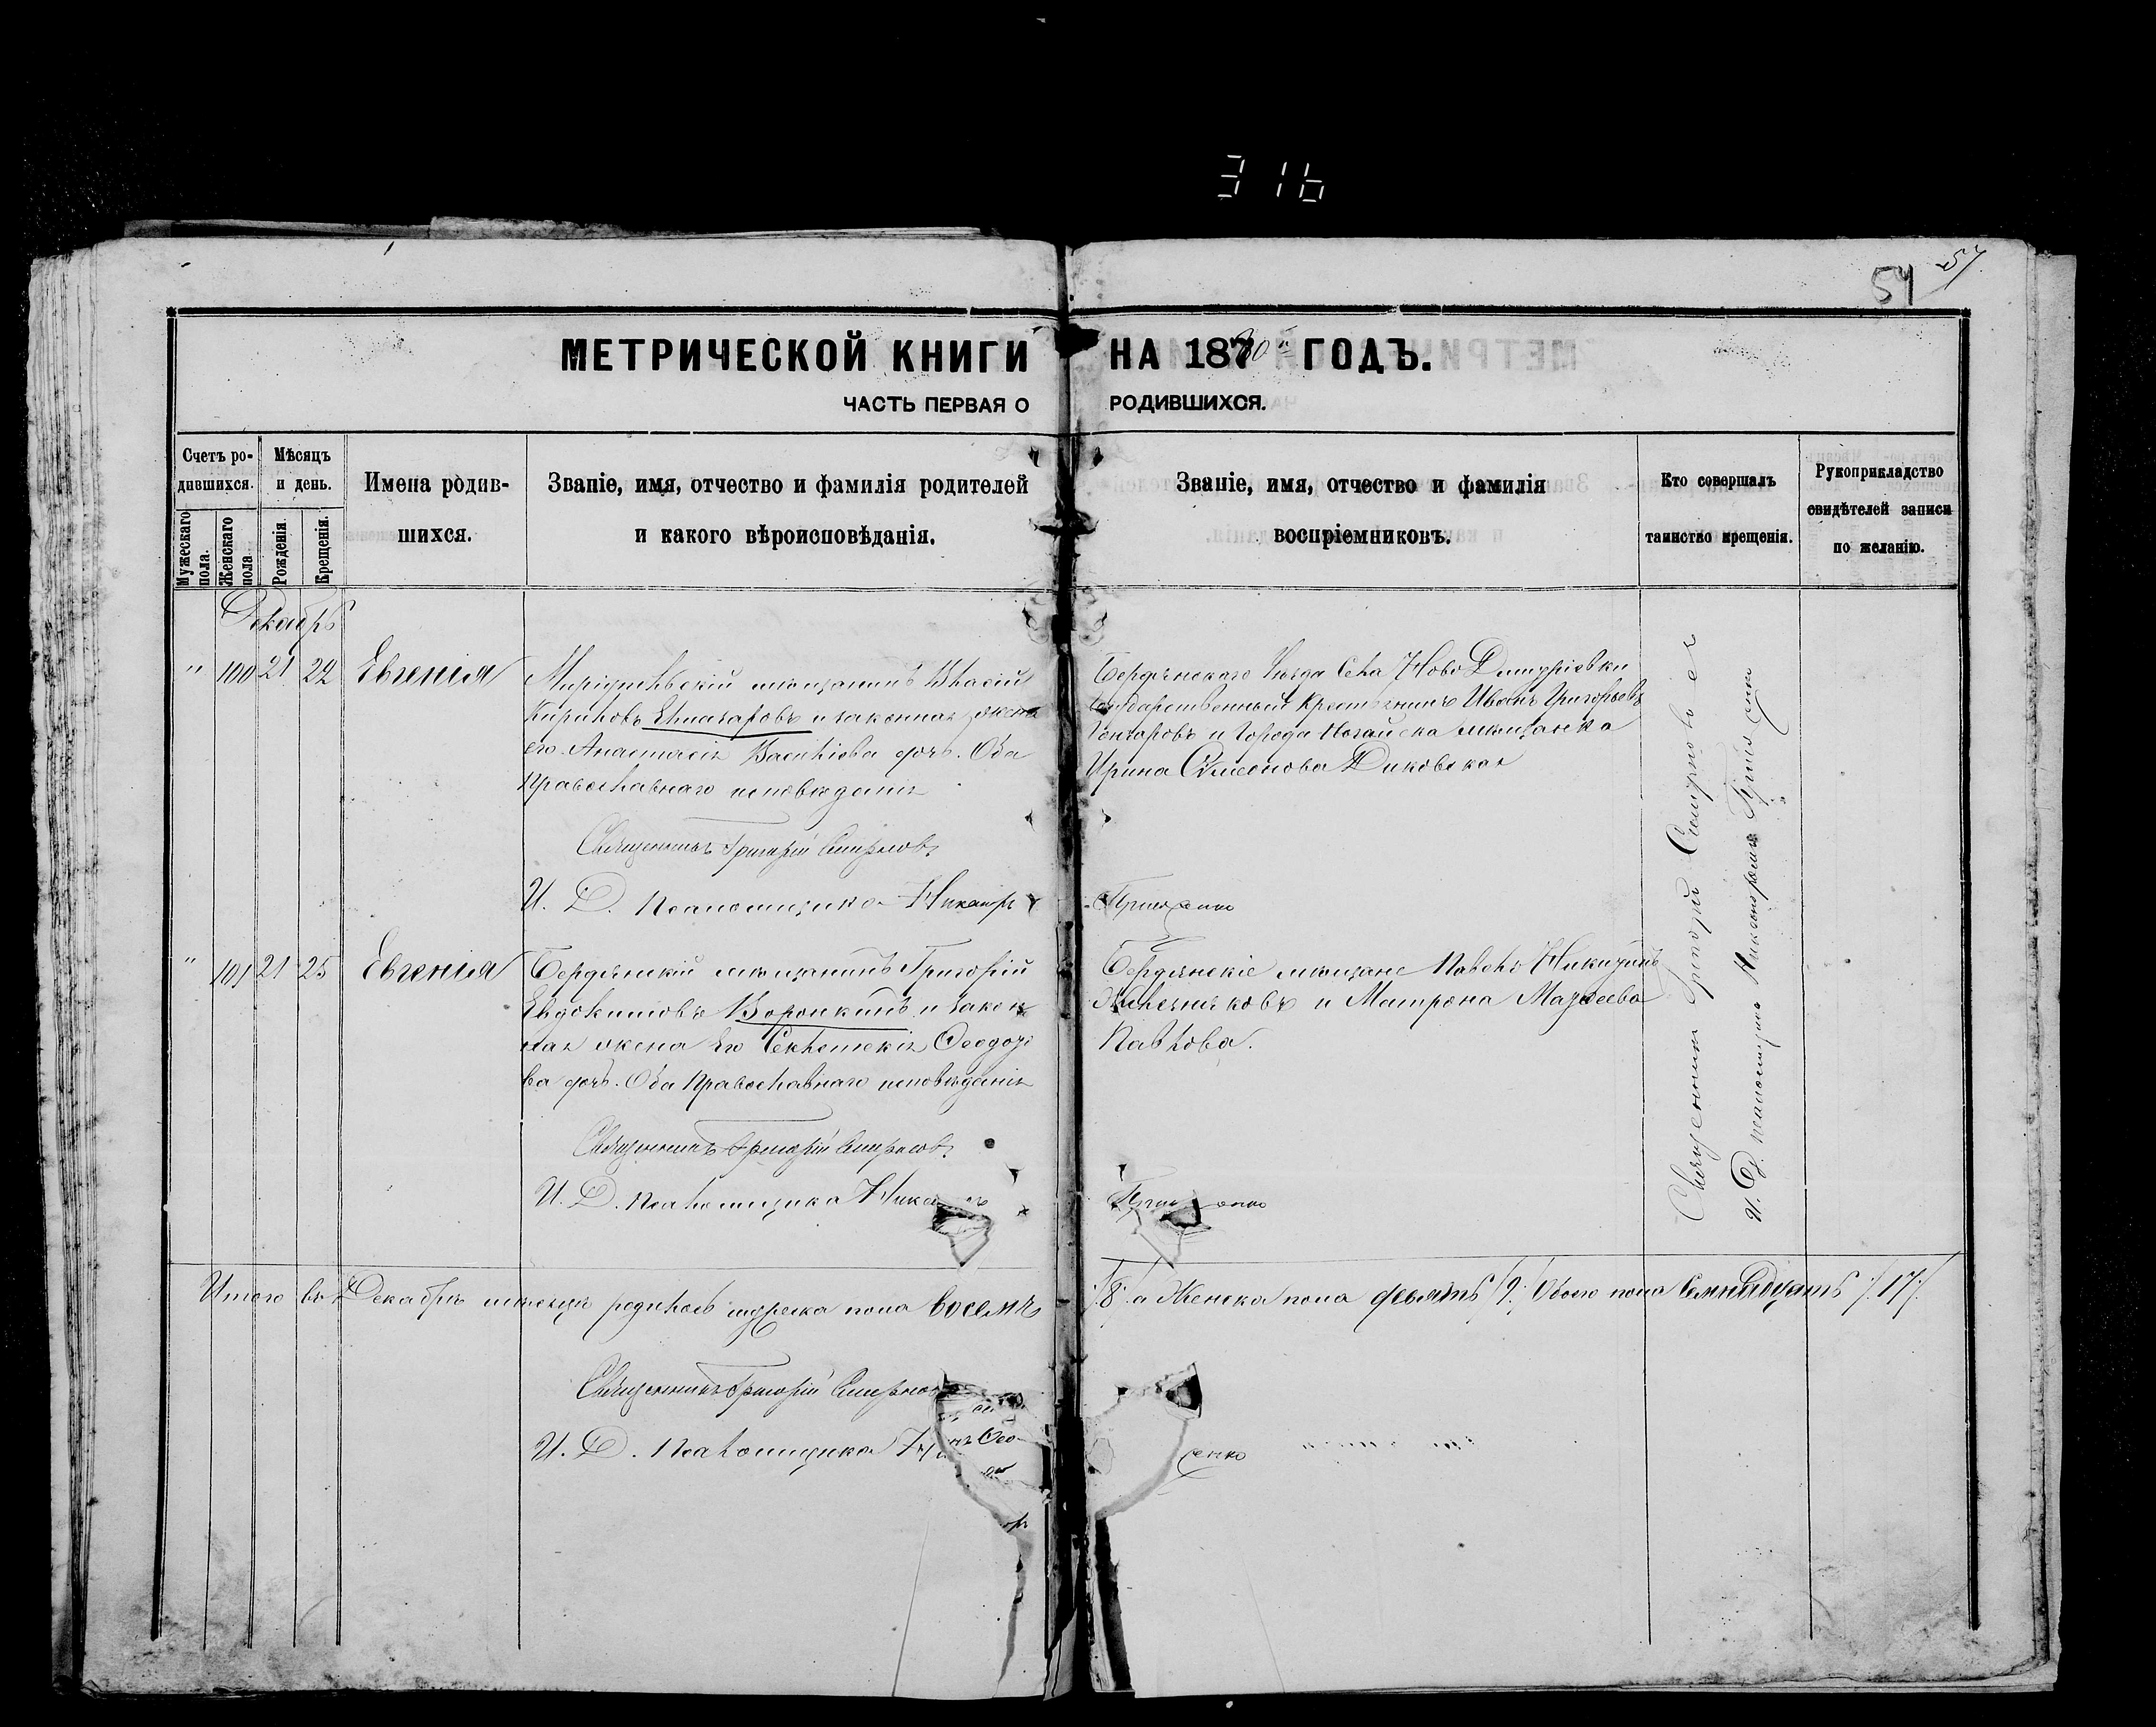 316
54 57.
МЕТРИЧЕСКОЙ КНИГИ НА 1880й ГОДЪ.
ЧАСТЬ ПЕРВАЯ О РОДИВШИХСЯ.
Счетъ ро-дившихся.
Мужескаго пола.
Женскаго пола
Мѣсяцъ и день.
Рожденія.
Крещенія.
Имена родив-
шихся.
Званіе, имя, отчество и фамилія родителей
и какого вѣроисповѣданія.
Званіе, имя, отчество и фамилія
воспріемниковъ.
Кто совершалъ
таинство крещенія.
Рукоприкладство
свидѣтелей записи
по желанію.
Декабрь
" 100 21 22 Евгенія
Маріупольскій мѣщанинъ Власій
Кириловъ и законная жена
его Анастасія Васильева дочь. Оба
Православнаго исповѣданія
Священникъ Григорій Смирновъ
И. Д. Псаломщика Никаноръ
Бердянскаго Уѣзда Села НовоДмитріевки
Государственный Крестьянинъ Иванъ Григорьевъ
Гончаровъ и Города Ногайска мѣщанка
Ирина Симеонова Диковская
" 101 21 25 Евгенія
Бердянскій мѣщанинъ Григорій
Евдокимовъ Воронкинъ и закон
ная жена его Феодоро
ва дочь. Оба Православнаго исповѣданія
Священникъ Григорій Смирновъ
И. Д. Псаломщика
Бердянскіе мѣщане Павелъ Никитинъ
и Матрона Матѳеева
Павлова.
Священникъ Григорій Смирновъ
И. Д. псаломщика Никаноръ
Итого въ Декабрѣ мѣсяцѣ родилось мужеска пола восемь /8/ а Женска пола девять /9/ Обоего пола семнадцать /17/
Священникъ Григорій Смирновъ
И. Д. Псаломщика
енко